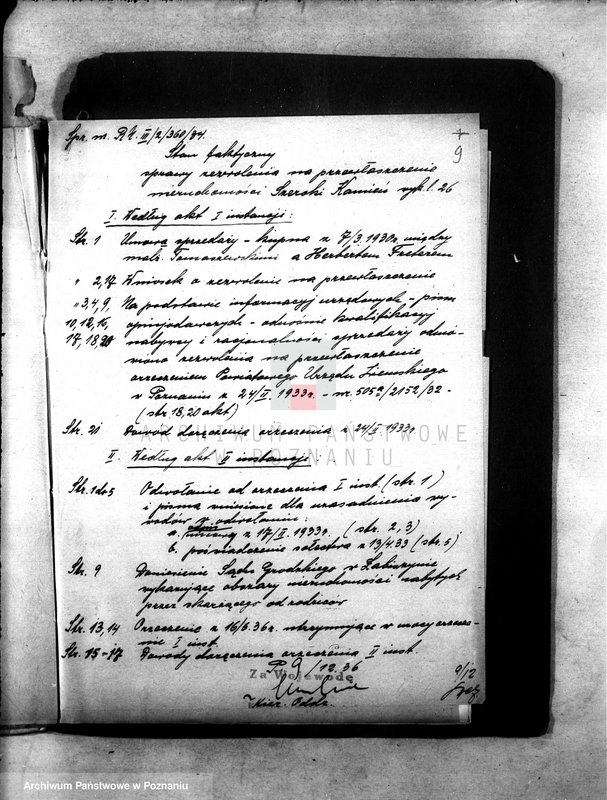 Spr. nr. RR. III/2/360/34.
9
Stan faktyczny
sprawy zezwolenia na przewłaszczenie
nieruchomości Szeroki Kamień wyk. l. 26
I. Według akt I instancji:
Str. 1 Umowa sprzedaży - kupna z 7/3.1930r. między
małż. Tomaszewskimi a Herbertem
" 2,17 Wniosek o zezwolenie na przewłaszczenie
" 3,4,9, Na podstawie informacyj urzędowych - pism
10,12,16, opinjodawczych - odnośnie kwalifikacyj
17,18,20 nabywcy i racjonalności sprzedaży odmó-
wiono zezwolenia na przewłaszczenie
orzeczeniem Powiatowego Urzędu Ziemskiego
w Poznaniu z 24/II. 1933r. - nr. 5052/2152/32 -
(str 18,20 akt)
Str. 21 Dowód doręczenia orzeczenia z 24/II. 1933r.
ARCHIWUM PAŃSTWOWE
W POZNANIU
II. Według akt II instancji:
Str. 1 do 5 Odwołanie od orzeczenia I inst. (str. 1)
i pisma wniesione dla uzasadnienia wy-
wodów odwołania:
a. z 17/II. 1933r. (str. 2, 3)
b. poświadczenie sołectwa z 13/4.33 (str. 5)
Str. 9 Doniesienie Sądu Grodzkiego w Łabiszynie
wykazujące obszary nieruchomości nabytych
przez skarżącego od rodziców
Str. 13, 14 Orzeczenie z 16/5.36r. utrzymujące w mocy orzecze-
nie I inst.
Str. 15-17 Dowody doręczenia orzeczenia II inst.
P. 9/12.36
Za Wojewodę
9/12
Kier. Oddz.
Archiwum Państwowe w Poznaniu